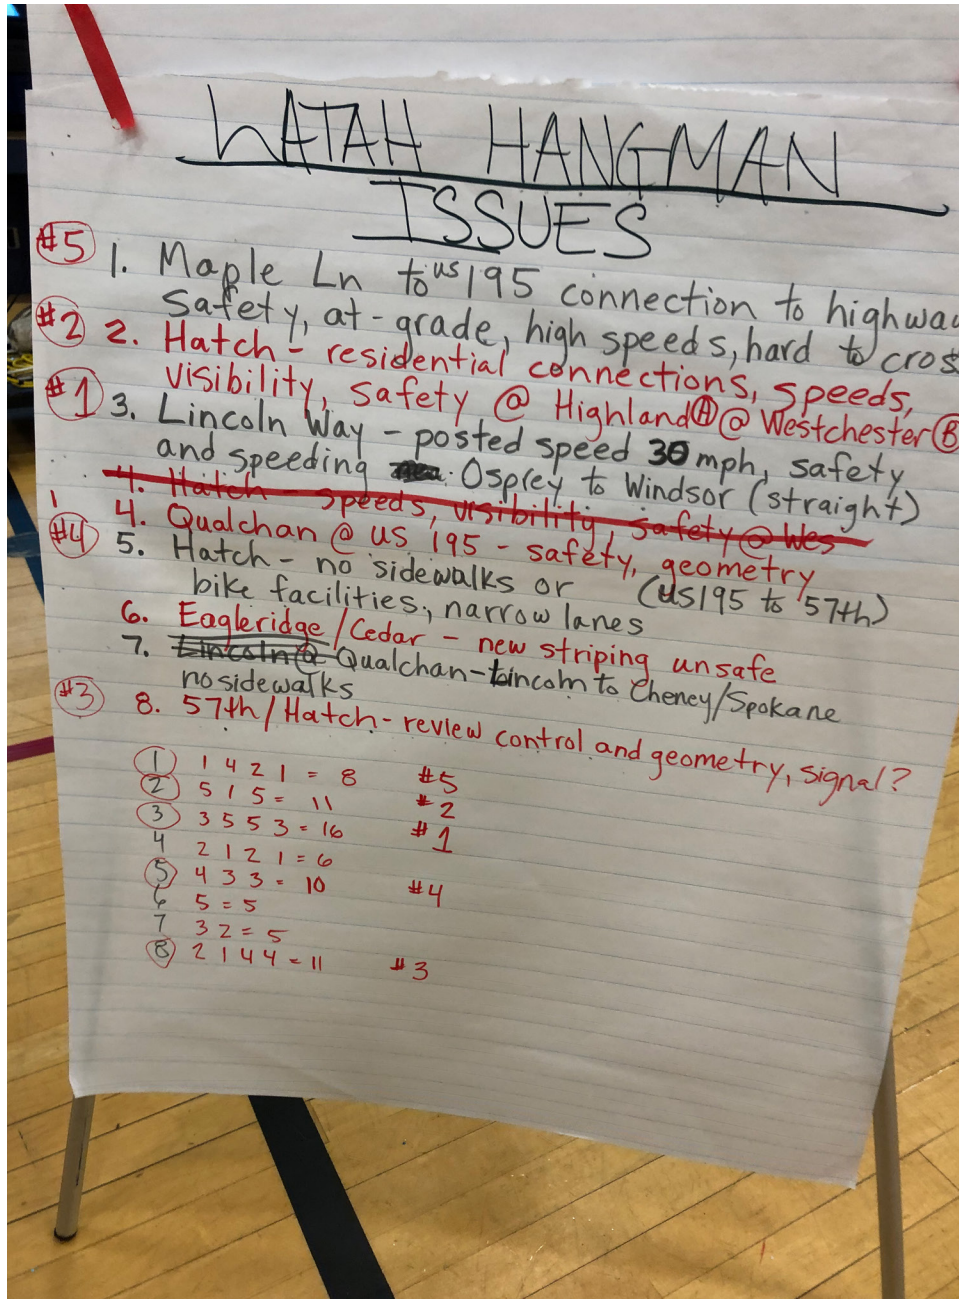 LATAH HANGMAN
ISSUES
#5 1. Maple Ln to us 195 connection to highway
Safety, at-grade, high speeds, hard to cros
#2 2. Hatch - residential connections, speeds,
visibility, safety @ Highland Ⓐ @ Westchester Ⓑ
#1 3. Lincoln Way - posted speed 30 mph, safety
and speeding Osprey to Windsor (straight)
4. Hatch - speeds, visibility, safety @ Wes
4. Qualchan @ US 195 - safety, geometry
#4 5. Hatch - no sidewalks or (US195 to 57th)
bike facilities, narrow lanes
6. Eagleridge/Cedar - new striping unsafe
7. Lincoln @ Qualchan - Lincoln to Cheney/Spokane
no sidewalks
#3 8. 57th/Hatch - review control and geometry, signal?
1 1 4 2 1 = 8 #5
2 5 1 5 = 11 #2
3 3 5 5 3 = 16 #1
4 2 1 2 1 = 6
5 4 3 3 = 10 #4
6 5 = 5
7 3 2 = 5
8 2 1 4 4 = 11 #3